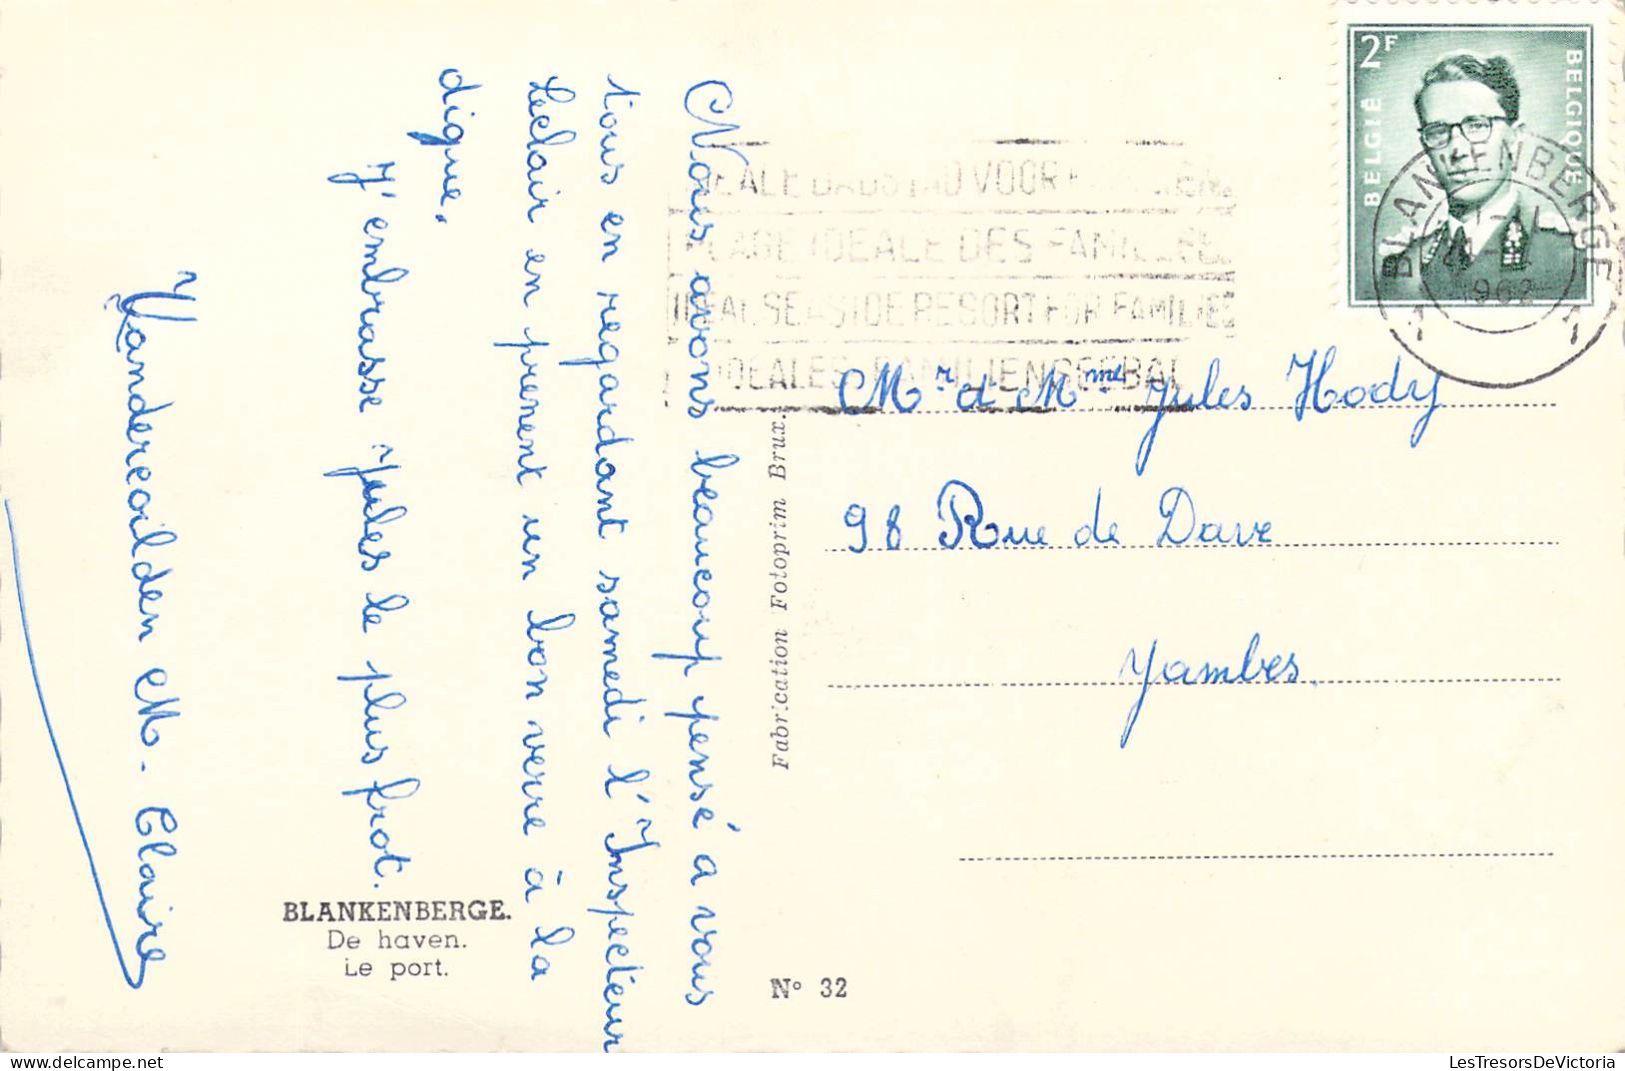 Nous avons beaucoup pensé a vous
tous en regardant samedi l'Inspecteur
Leclair en prenent un bon verre à la
digue,
J'embrasse Jules le plus frot.
M. Claire
BLANKENBERGE.
De haven.
Le port.
Fabrication Fotoprim Brux.
N° 32
2F
BELGIË
BELGIQUE
BLANKENBERGE
1962
1 1
VOOR
PLAGE IDEALE DES FAMILLES
IDEAL SEASIDE RESORT FOR FAMILIES
IDEALES FAMILIENSEEBAD
Mr et Mme Jules Hody
98 Rue de Dave
Jambes.
LesTresorsDeVictoria